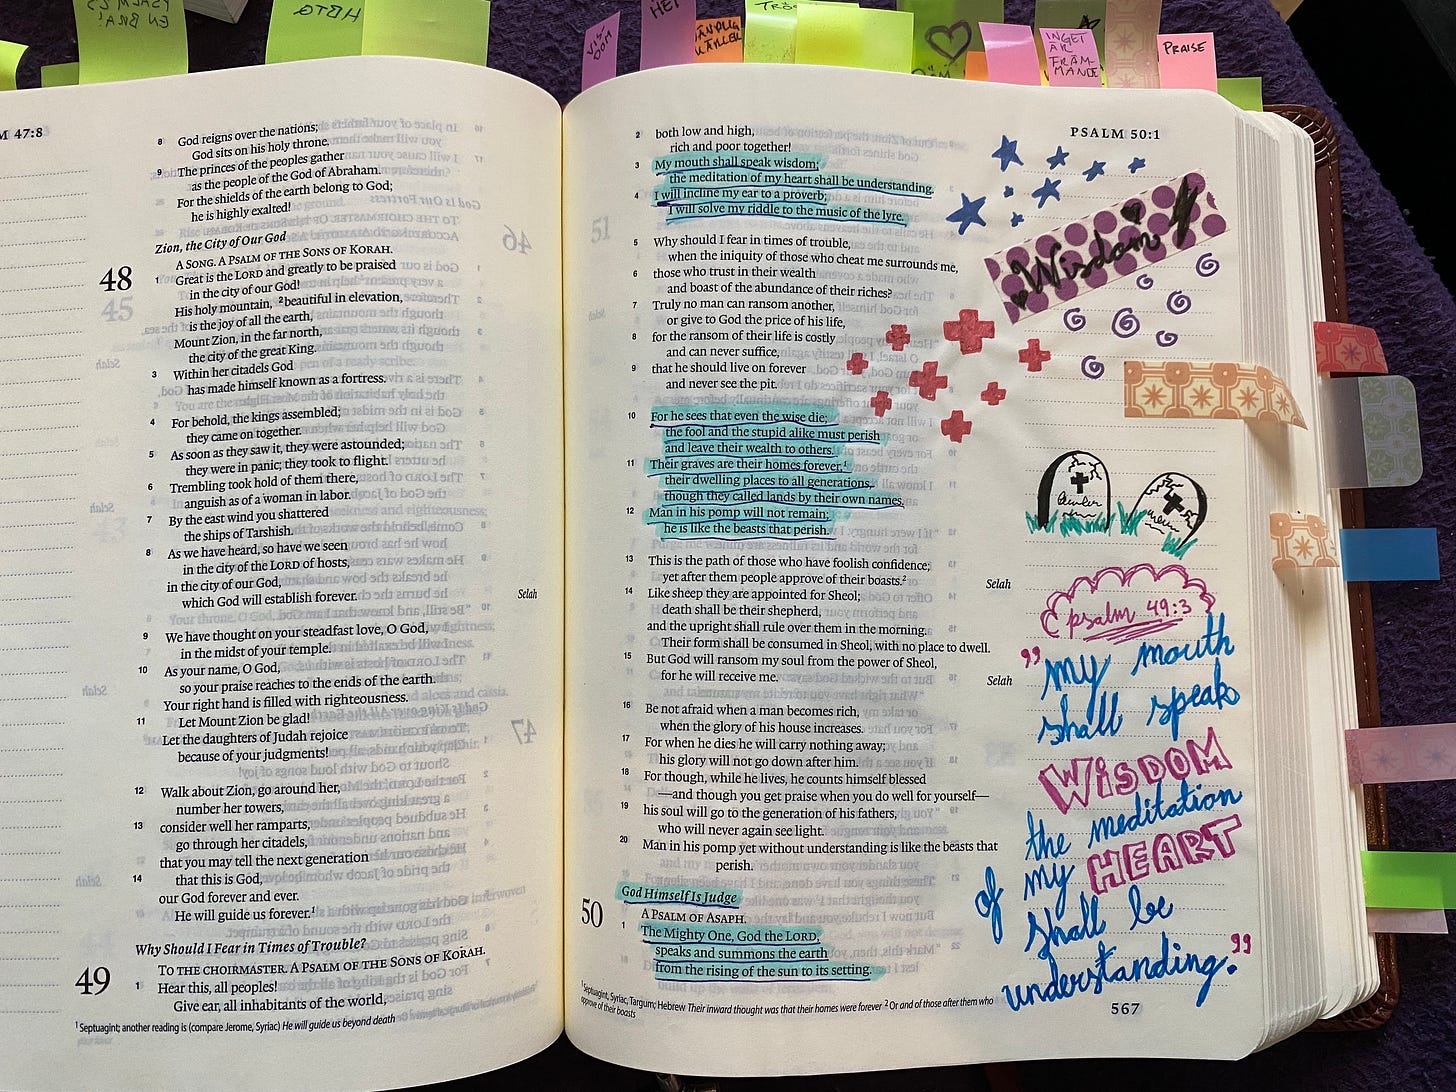 PSALM ES
EN BRA!
HBTG
VIS
DOM
HEJ
INGET
ÄR
FRÄM-
MANDE
PRAISE
M 47:8
8 God reigns over the nations;
God sits on his holy throne.
9 The princes of the peoples gather
as the people of the God of Abraham.
For the shields of the earth belong to God;
he is highly exalted!
Zion, the City of Our God
48 A SONG. A PSALM OF THE SONS OF KORAH.
1 Great is the LORD and greatly to be praised
in the city of our God!
His holy mountain, 2 beautiful in elevation,
is the joy of all the earth,
Mount Zion, in the far north,
the city of the great King.
3 Within her citadels God
has made himself known as a fortress.
4 For behold, the kings assembled;
they came on together.
5 As soon as they saw it, they were astounded;
they were in panic; they took to flight.
6 Trembling took hold of them there,
anguish as of a woman in labor.
7 By the east wind you shattered
the ships of Tarshish.
8 As we have heard, so have we seen
in the city of the LORD of hosts,
in the city of our God,
which God will establish forever. Selah
9 We have thought on your steadfast love, O God,
in the midst of your temple.
10 As your name, O God,
so your praise reaches to the ends of the earth.
Your right hand is filled with righteousness.
11 Let Mount Zion be glad!
Let the daughters of Judah rejoice
because of your judgments!
12 Walk about Zion, go around her,
number her towers,
13 consider well her ramparts,
go through her citadels,
that you may tell the next generation
14 that this is God,
our God forever and ever.
He will guide us forever.1
Why Should I Fear in Times of Trouble?
49 TO THE CHOIRMASTER. A PSALM OF THE SONS OF KORAH.
1 Hear this, all peoples!
Give ear, all inhabitants of the world,
1 Septuagint; another reading is (compare Jerome, Syriac) He will guide us beyond death
PSALM 50:1
2 both low and high,
rich and poor together!
3 My mouth shall speak wisdom;
the meditation of my heart shall be understanding.
4 I will incline my ear to a proverb;
I will solve my riddle to the music of the lyre.
5 Why should I fear in times of trouble,
when the iniquity of those who cheat me surrounds me,
6 those who trust in their wealth
and boast of the abundance of their riches?
7 Truly no man can ransom another,
or give to God the price of his life,
8 for the ransom of their life is costly
and can never suffice,
9 that he should live on forever
and never see the pit.
10 For he sees that even the wise die;
the fool and the stupid alike must perish
and leave their wealth to others.
11 Their graves are their homes forever,1
their dwelling places to all generations,
though they called lands by their own names.
12 Man in his pomp will not remain;
he is like the beasts that perish.
13 This is the path of those who have foolish confidence;
yet after them people approve of their boasts.2 Selah
14 Like sheep they are appointed for Sheol;
death shall be their shepherd,
and the upright shall rule over them in the morning.
Their form shall be consumed in Sheol, with no place to dwell.
15 But God will ransom my soul from the power of Sheol,
for he will receive me. Selah
16 Be not afraid when a man becomes rich,
when the glory of his house increases.
17 For when he dies he will carry nothing away;
his glory will not go down after him.
18 For though, while he lives, he counts himself blessed
—and though you get praise when you do well for yourself—
19 his soul will go to the generation of his fathers,
who will never again see light.
20 Man in his pomp yet without understanding is like the beasts that
perish.
God Himself Is Judge
50 A PSALM OF ASAPH.
1 The Mighty One, God the LORD,
speaks and summons the earth
from the rising of the sun to its setting.
1 Septuagint, Syriac, Targum; Hebrew Their inward thought was that their homes were forever 2 Or and of those after them who
approve of their boasts
567
Wisdom
psalm 49:3
"my mouth
shall speak
WISDOM
the meditation
of my HEART
shall be
understanding."